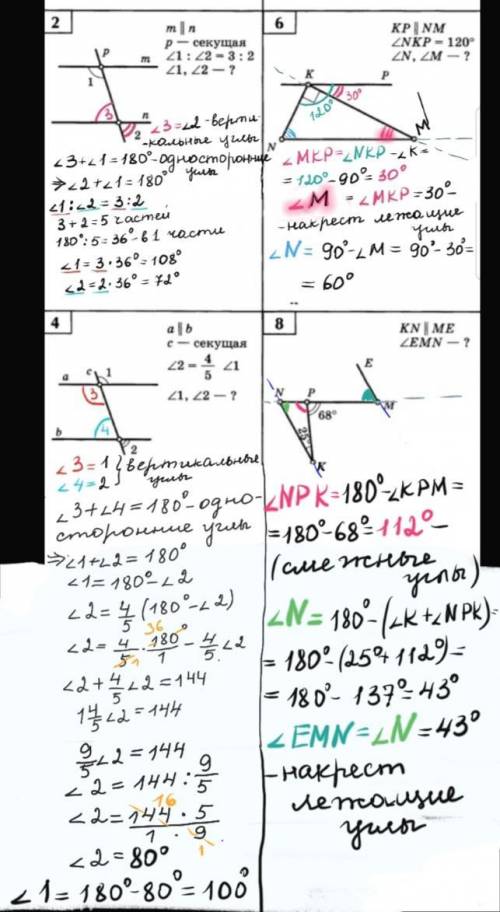 2
m ∥ n
p — секущая
∠1 : ∠2 = 3 : 2
∠1, ∠2 — ?
p
m
1
3
n
2
∠3=∠2-верти-
кальные углы
∠3+∠1=180°-односторонние
углы
⇒∠2+∠1=180°
∠1:∠2=3:2
3+2=5 частей
180°:5=36°-в 1 части
∠1=3·36°=108°
∠2=2·36°=72°
6
KP ∥ NM
∠NKP = 120°
∠N, ∠M — ?
K
P
30°
120°
N
M
∠MKP=∠NKP-∠K=
=120°-90°=30°
∠M = ∠MKP=30°-
-накрест лежащие
углы
∠N= 90°-∠M = 90°-30°=
= 60°
4
a ∥ b
c — секущая
∠2 = 4/5 ∠1
∠1, ∠2 — ?
c
1
a
3
4
b
2
∠3=1 } вертикальные
∠4=2 } углы
∠3+∠4=180°-одно-
сторонние углы
⇒∠1+∠2=180°
∠1=180°-∠2
∠2=4/5(180°-∠2)
36
∠2=4/5·180°/1-4/5∠2
1
∠2+4/5∠2=144
1 4/5∠2=144
9/5∠2=144
∠2=144:9/5
16
∠2=144·5/1·9
1
∠2=80°
∠1=180°-80°=100°
8
KN ∥ ME
∠EMN — ?
E
N
P
68°
M
25°
K
∠NPK=180°-∠KPM=
=180°-68°=112°-
(смежные
углы)
∠N=180°-(∠K+∠NPK)=
=180°-(25°+112°)=
=180°-137°=43°
∠EMN=∠N=43°
-накрест
лежащие
углы